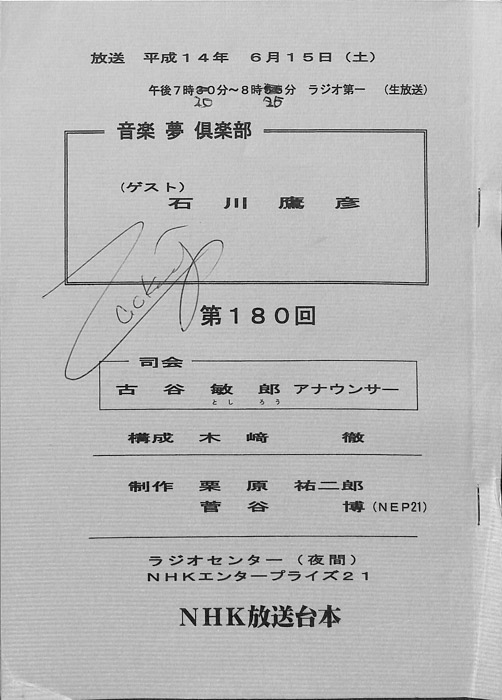 放送 平成14年 6月15日（土）
午後7時30分～8時55分 ラジオ第一 （生放送）
20 25
音楽 夢 倶楽部
（ゲスト）
石川 鷹彦
第180回
司会
古谷 敏郎 アナウンサー
としろう
構成 木﨑 徹
制作 栗原 祐二郎
菅谷 博（NEP21）
ラジオセンター（夜間）
NHKエンタープライズ21
NHK放送台本